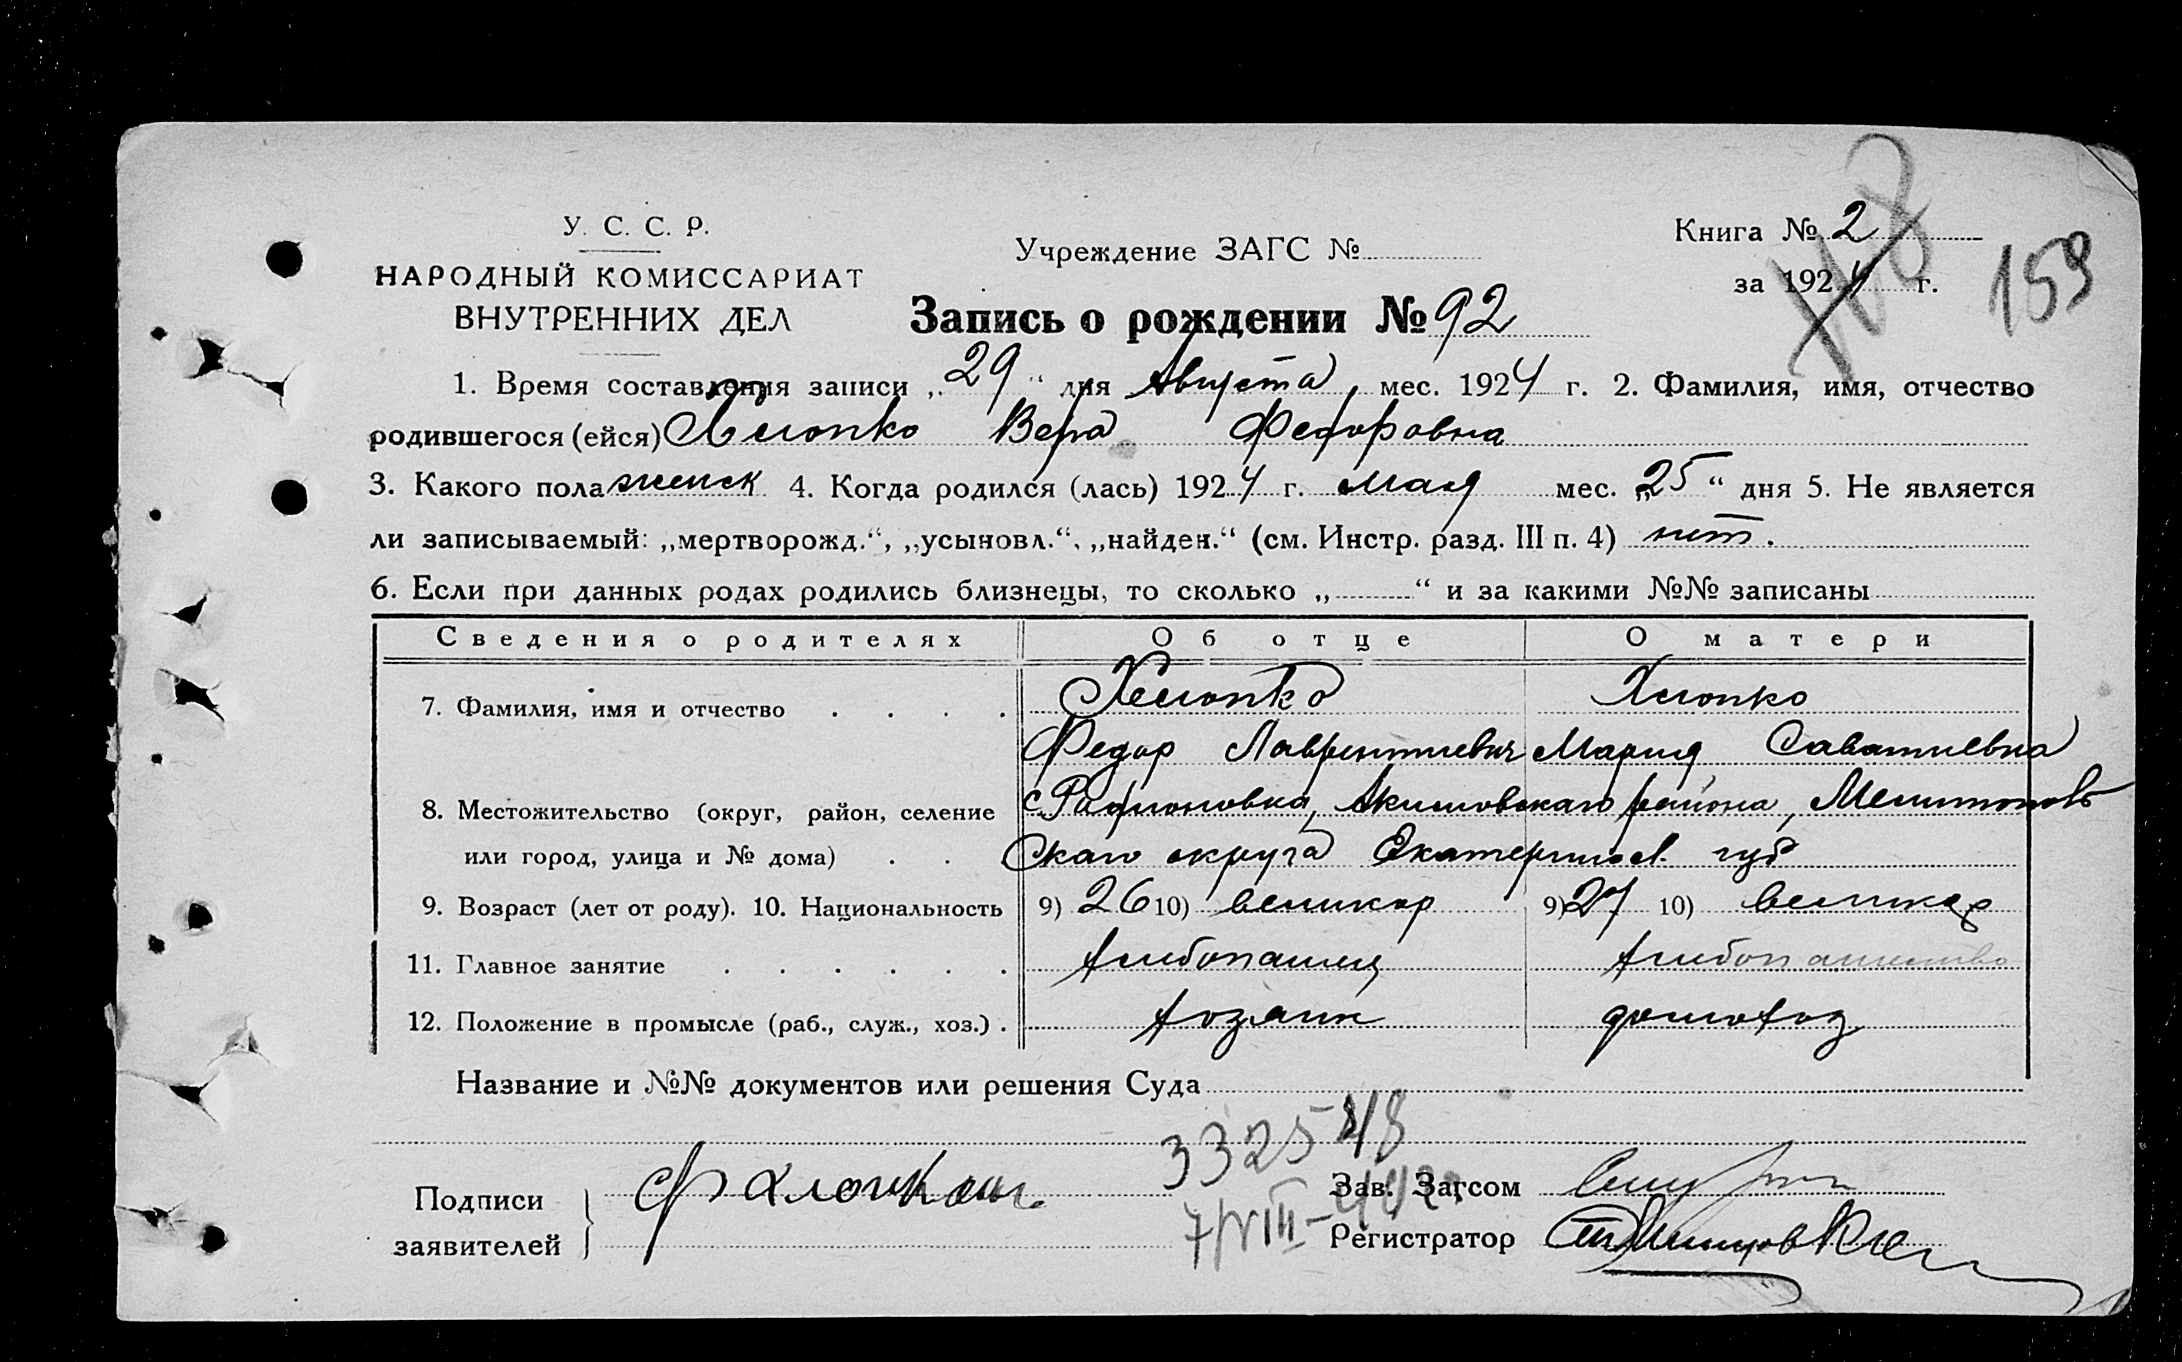 У. С. С. Р.
НАРОДНЫЙ КОМИССАРИАТ
ВНУТРЕННИХ ДЕЛ
Учреждение ЗАГС №
Книга № 2
за 1924 г.
159
Запись о рождении № 92
1. Время составления записи „29“ дня Августа мес. 1924 г. 2. Фамилия, имя, отчество
родившегося (ейся) Хлопко Вера Федоровна
3. Какого пола женск 4. Когда родился (лась) 1924 г. мая мес. „25“ дня 5. Не является
ли записываемый: „мертворожд.“, „усыновл.“, „найден.“ (см. Инстр. разд. III п. 4) нет.
6. Если при данных родах родились близнецы, то сколько „ “ и за какими №№ записаны
Сведения о родителях Об отце О матери
7. Фамилия, имя и отчество Хлопко Хлопко
Федор Лаврентиевич Мария Саватиевна
8. Местожительство (округ, район, селение с Родионовка, Акимовскаго района, Мелитополь
или город, улица и № дома) скаго округа Екатериносл. губ
9. Возраст (лет от роду). 10. Национальность 9) 26 10) великор 9) 27 10) великор
11. Главное занятие хлебопашец хлебопашество
12. Положение в промысле (раб., служ., хоз.) хозяин домоход
Название и №№ документов или решения Суда
332548
Подписи
заявителей
Зав. Загсом
7/VIII-
Регистратор